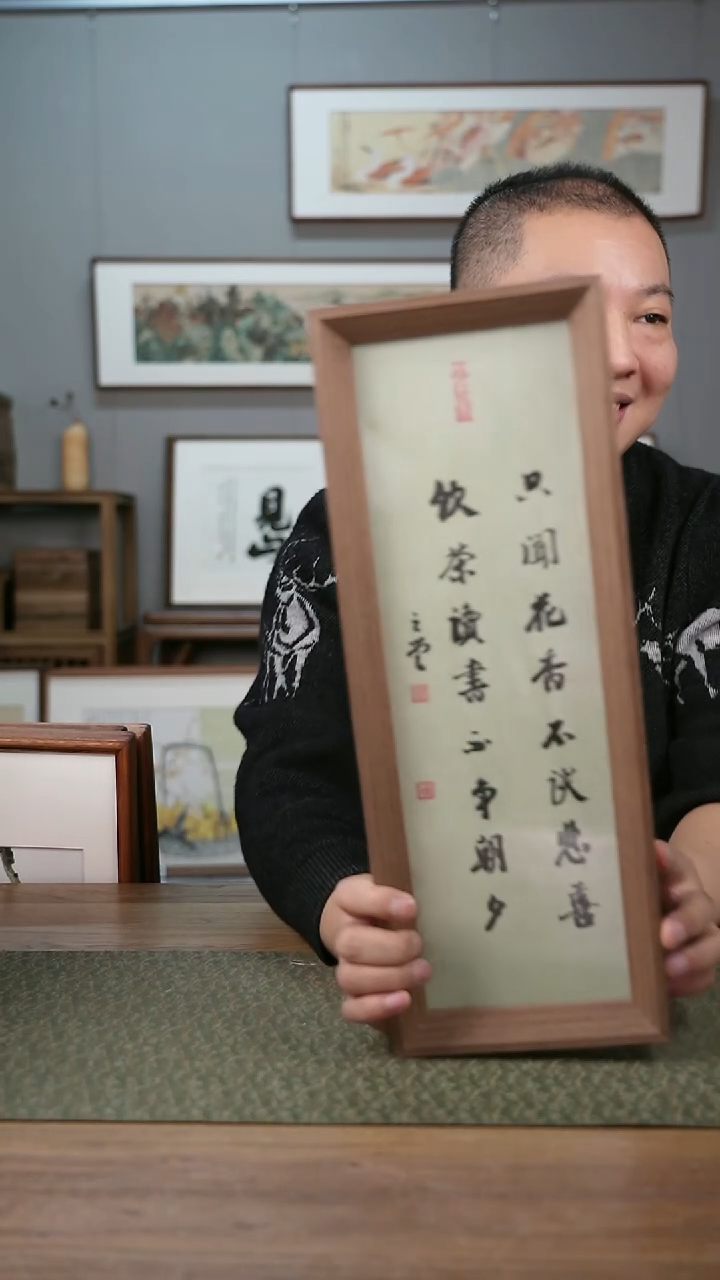 只闻花香不谈悲喜
饮茶读书不争朝夕
见山